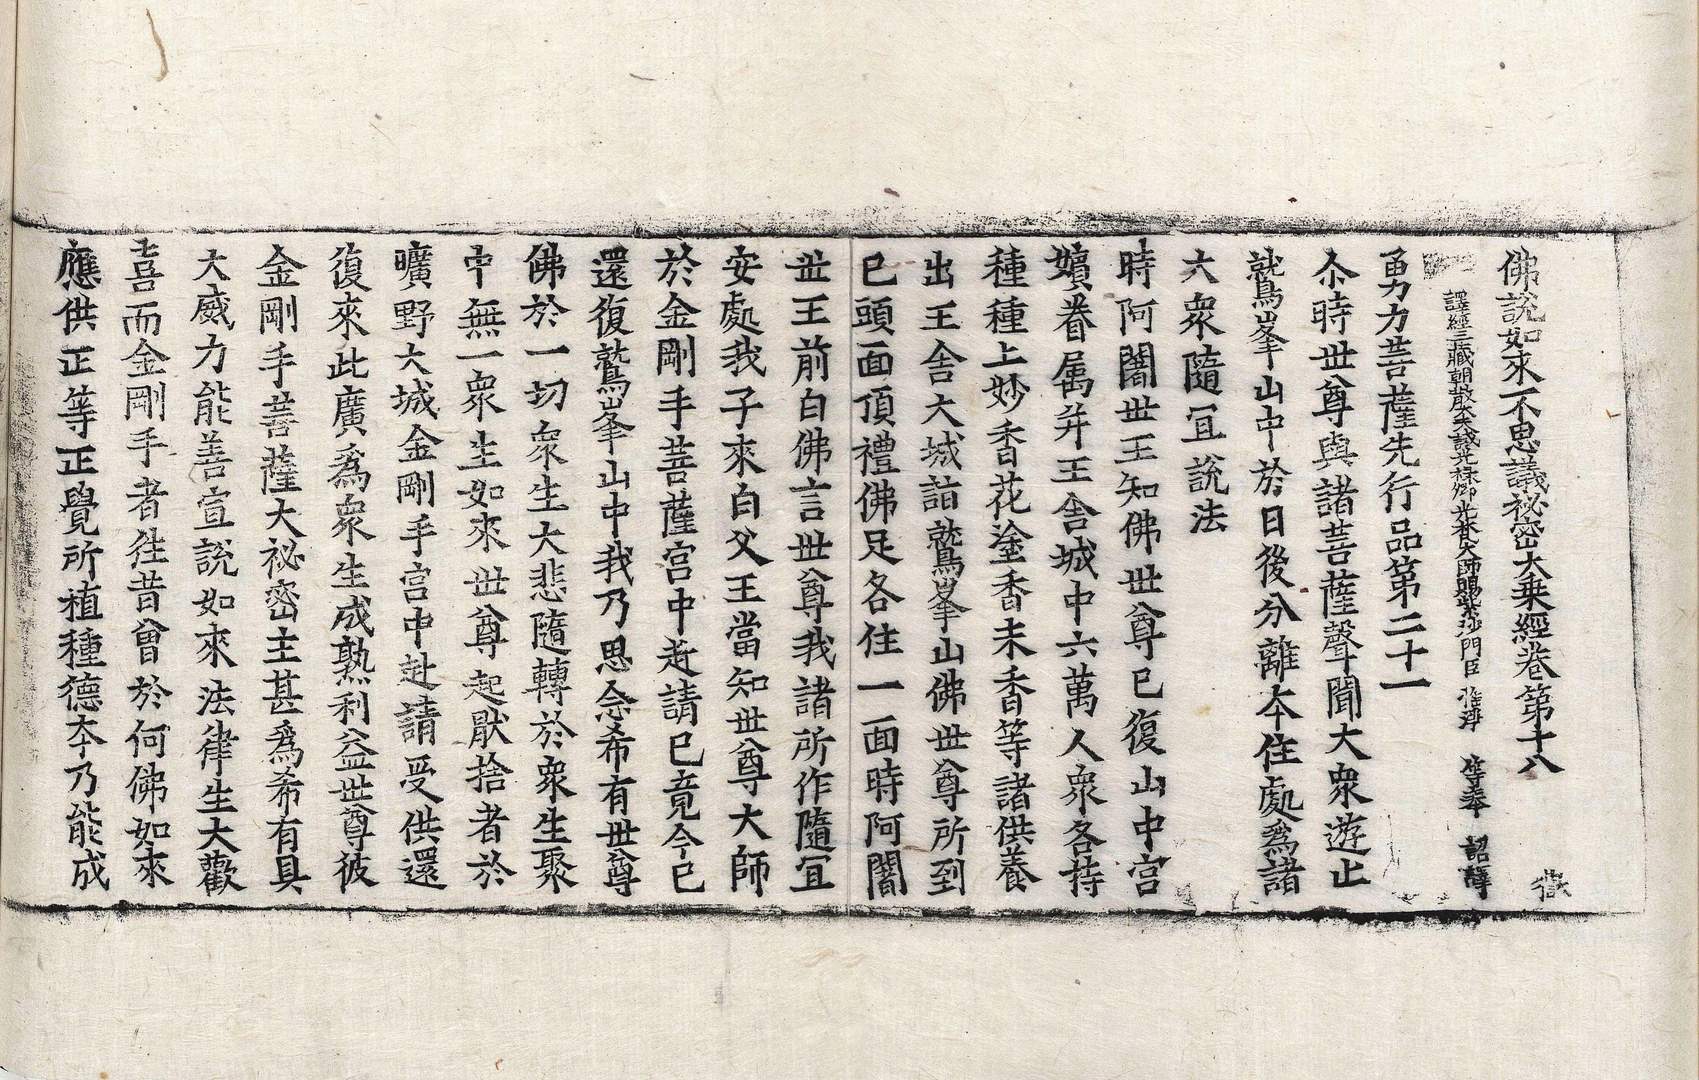 佛說如來不思議祕密大乘經卷第十八 徵
譯經三藏朝散大夫試光祿卿光梵大師賜紫沙門臣惟淨等奉 詔譯
勇力菩薩先行品第二十一
尒時世尊與諸菩薩聲聞大衆遊止
鷲峯山中於日後分離本住處爲諸
大衆隨冝說法
時阿闍世王知佛世尊已復山中宮
嬪眷属并王舍城中六萬人衆各持
種種上妙香花塗香末香等諸供養
出王舍大城詣鷲峯山佛世尊所到
已頭面頂禮佛足各住一面時阿闍
世王前白佛言世尊我諸所作隨冝
安處我子來白父王當知世尊大師
於金剛手菩薩宮中赴請已竟今已
還復鷲峯山中我乃思念希有世尊
佛於一切衆生大悲隨轉於衆生聚
中無一衆生如來世尊起猒捨者於
曠野大城金剛手宮中赴請受供還
復來此廣爲衆生成熟利益世尊彼
金剛手菩薩大祕密主甚爲希有具
大威力能善宣說如來法律生大歡
喜而金剛手者徃昔曾於何佛如來
應供正等正覺所植種德本乃能成